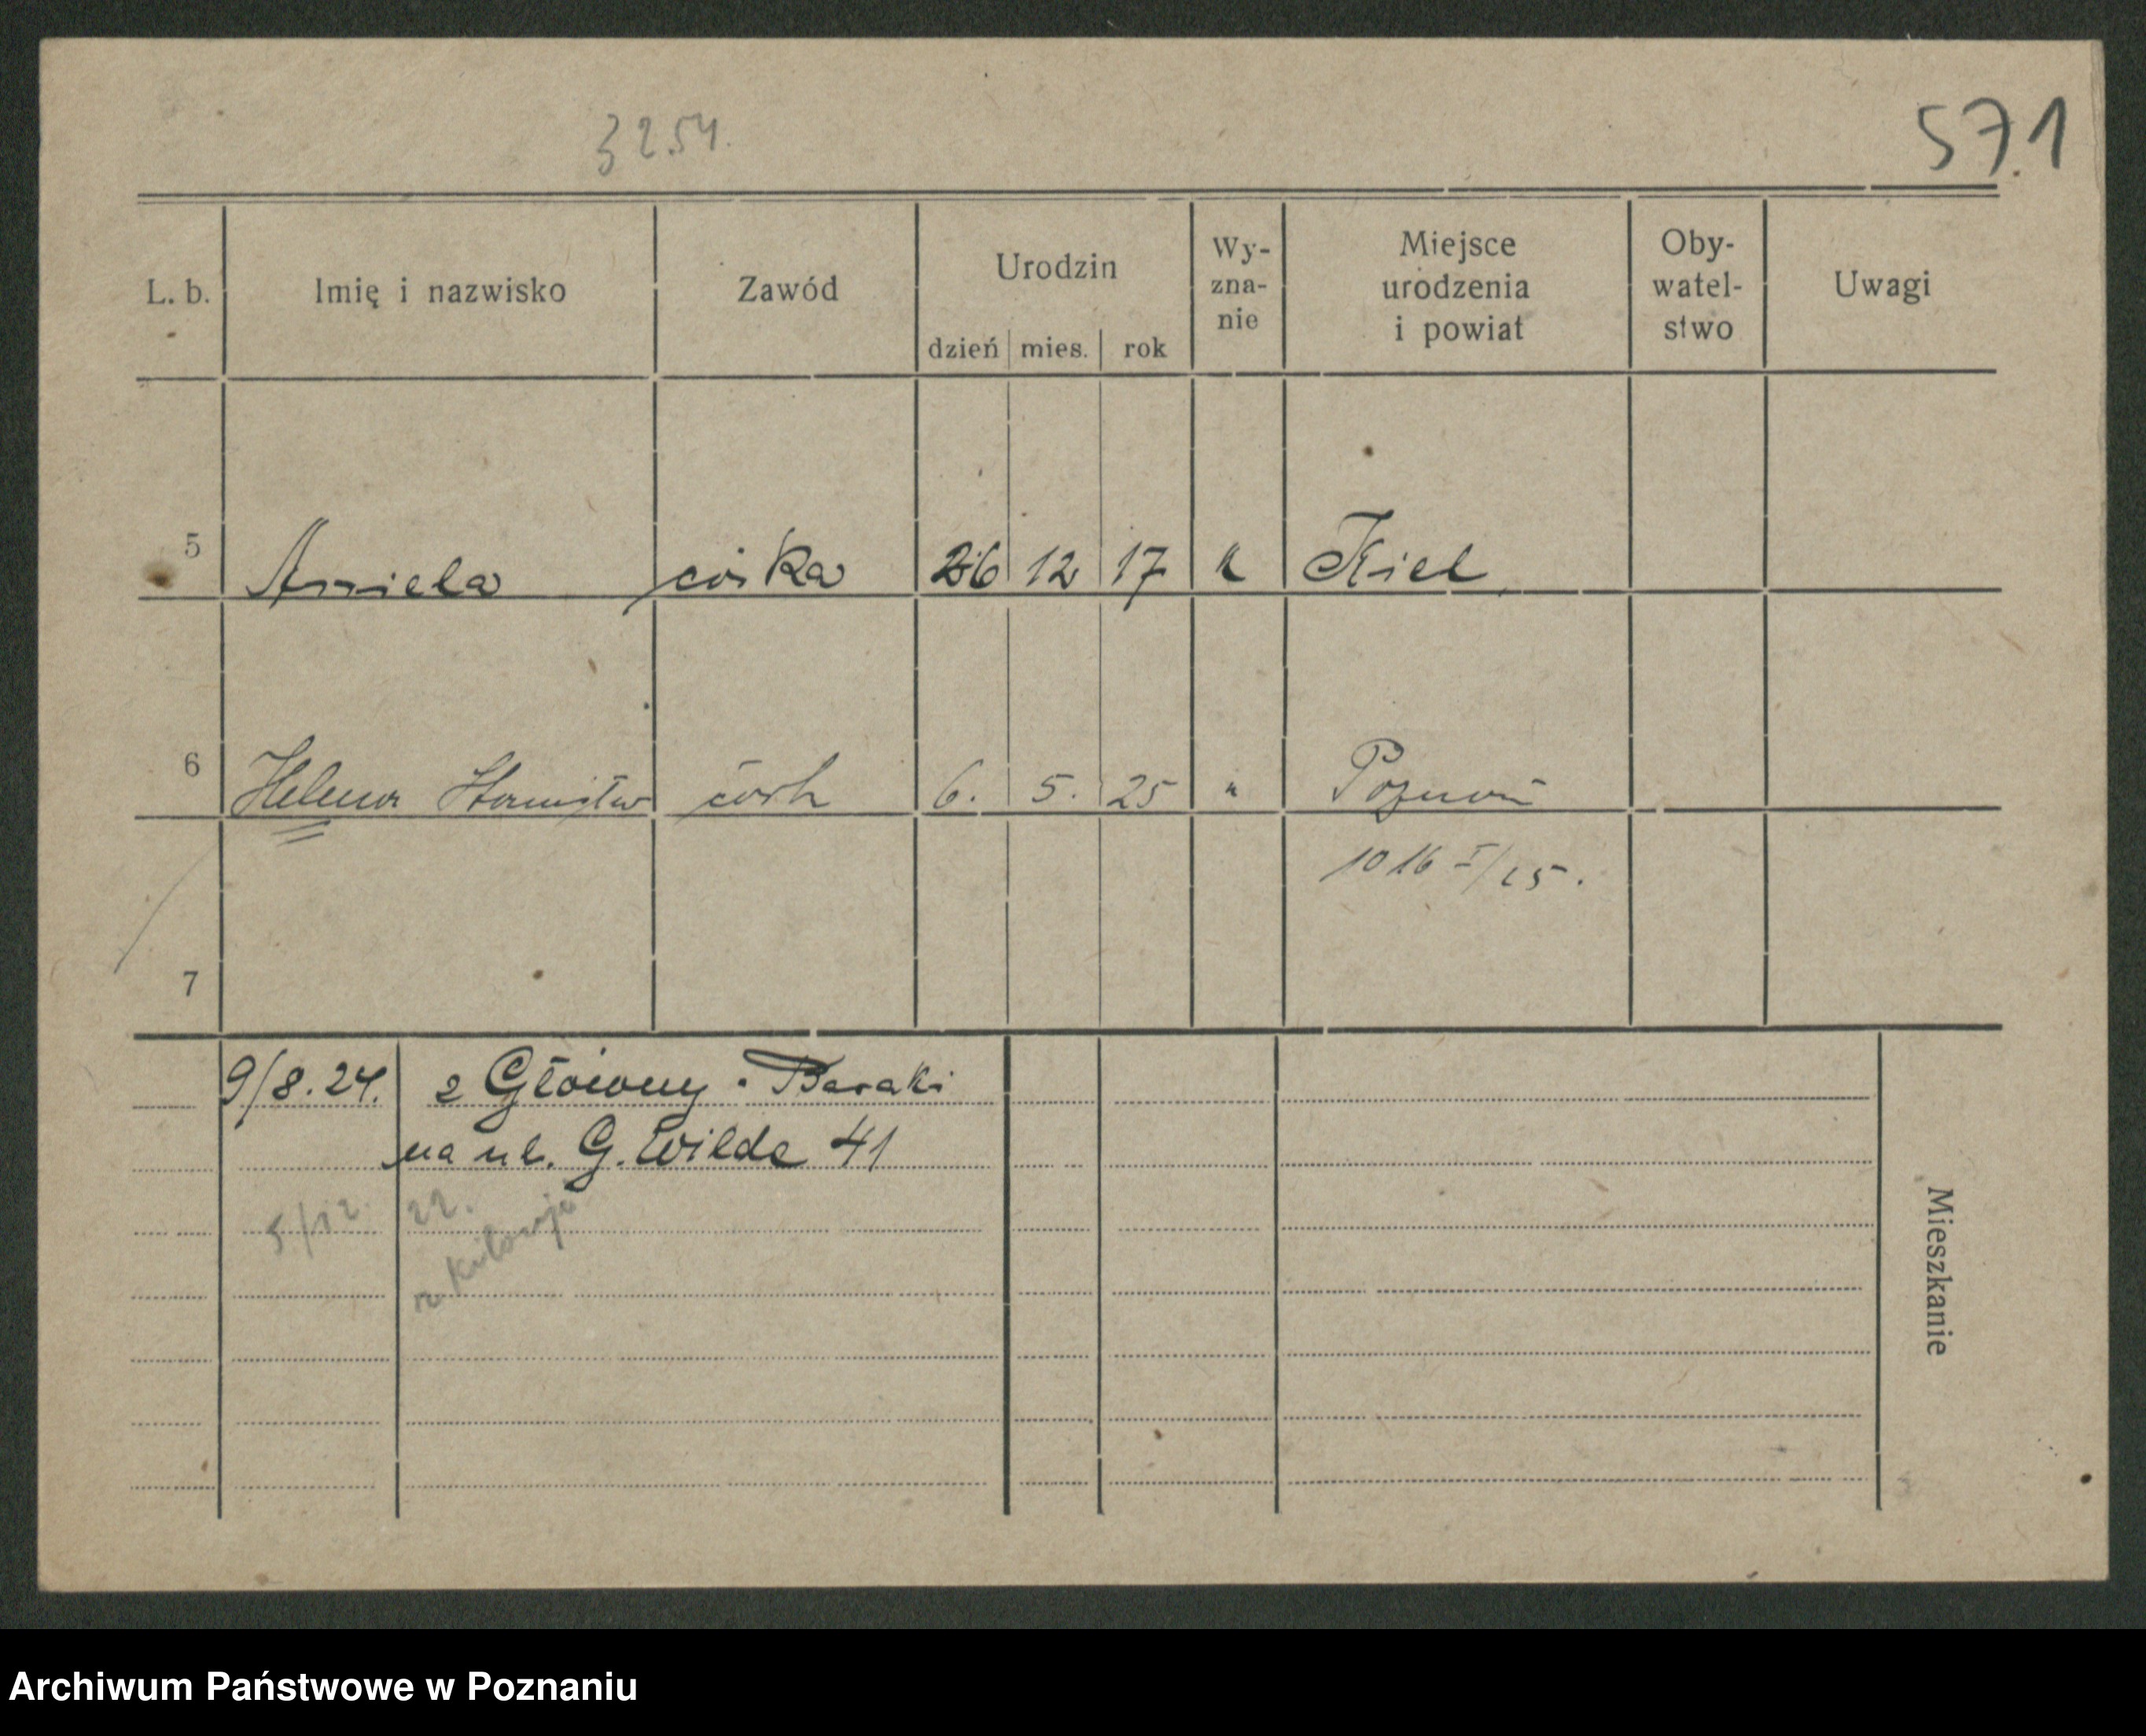 3254.
571
L. b.
Imię i nazwisko
Zawód
Urodzin
dzień mies. rok
Wy-
zna-
nie
Miejsce
urodzenia
i powiat
Oby-
watel-
stwo
Uwagi
5 Aniela córka 26 12 17 k Kiel
6 Helena córk 6. 5. 25 " Poznań
1016 I/25.
7
9/8.24. z Główny - Baraki
na ul. G. Wilda 41
5/12. 22.
Mieszkanie
Archiwum Państwowe w Poznaniu